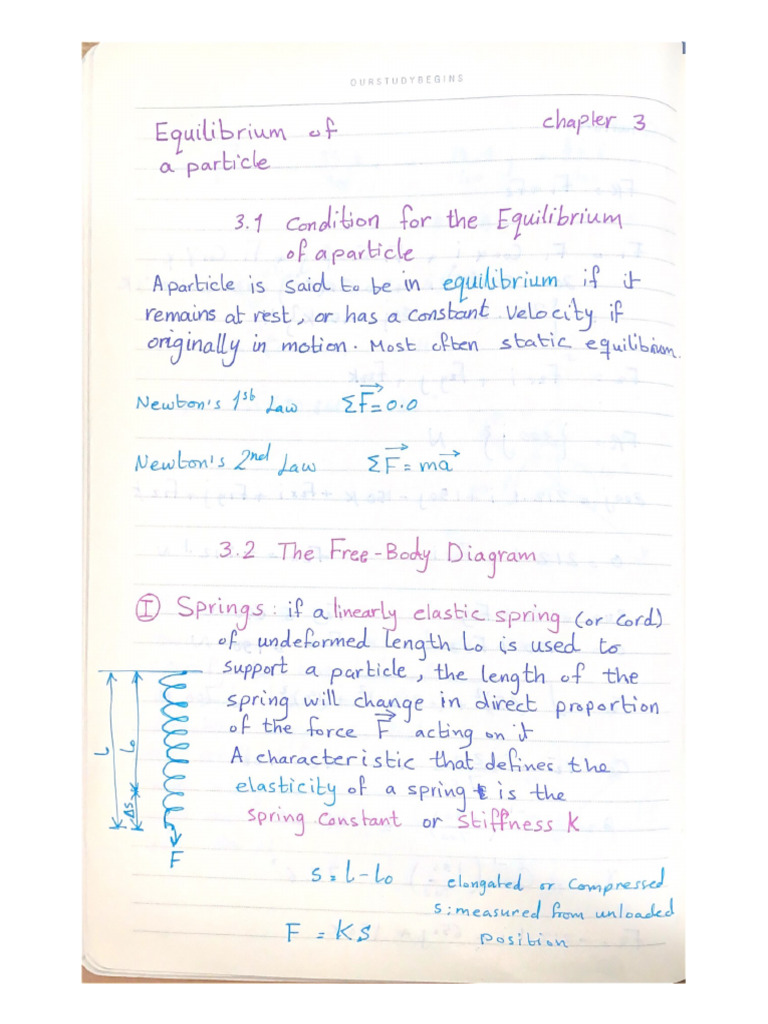 OURSTUDYBEGINS
Equilibrium of
a particle
chapter 3
3.1 Condition for the Equilibrium
of a particle
A particle is said to be in equilibrium if it
remains at rest, or has a constant velocity if
originally in motion. Most often static equilibrium.
Newton's 1st Law ΣF⃗ = 0.0
Newton's 2nd Law ΣF⃗ = ma⃗
3.2 The Free-Body Diagram
Ⓘ Springs: if a linearly elastic spring (or cord)
of undeformed length Lo is used to
support a particle, the length of the
spring will change in direct proportion
of the force F⃗ acting on it
A characteristic that defines the
elasticity of a spring is the
spring constant or stiffness K
L
Lo
Δs
F
s = L - Lo
elongated or compressed
s: measured from unloaded
position
F = KS